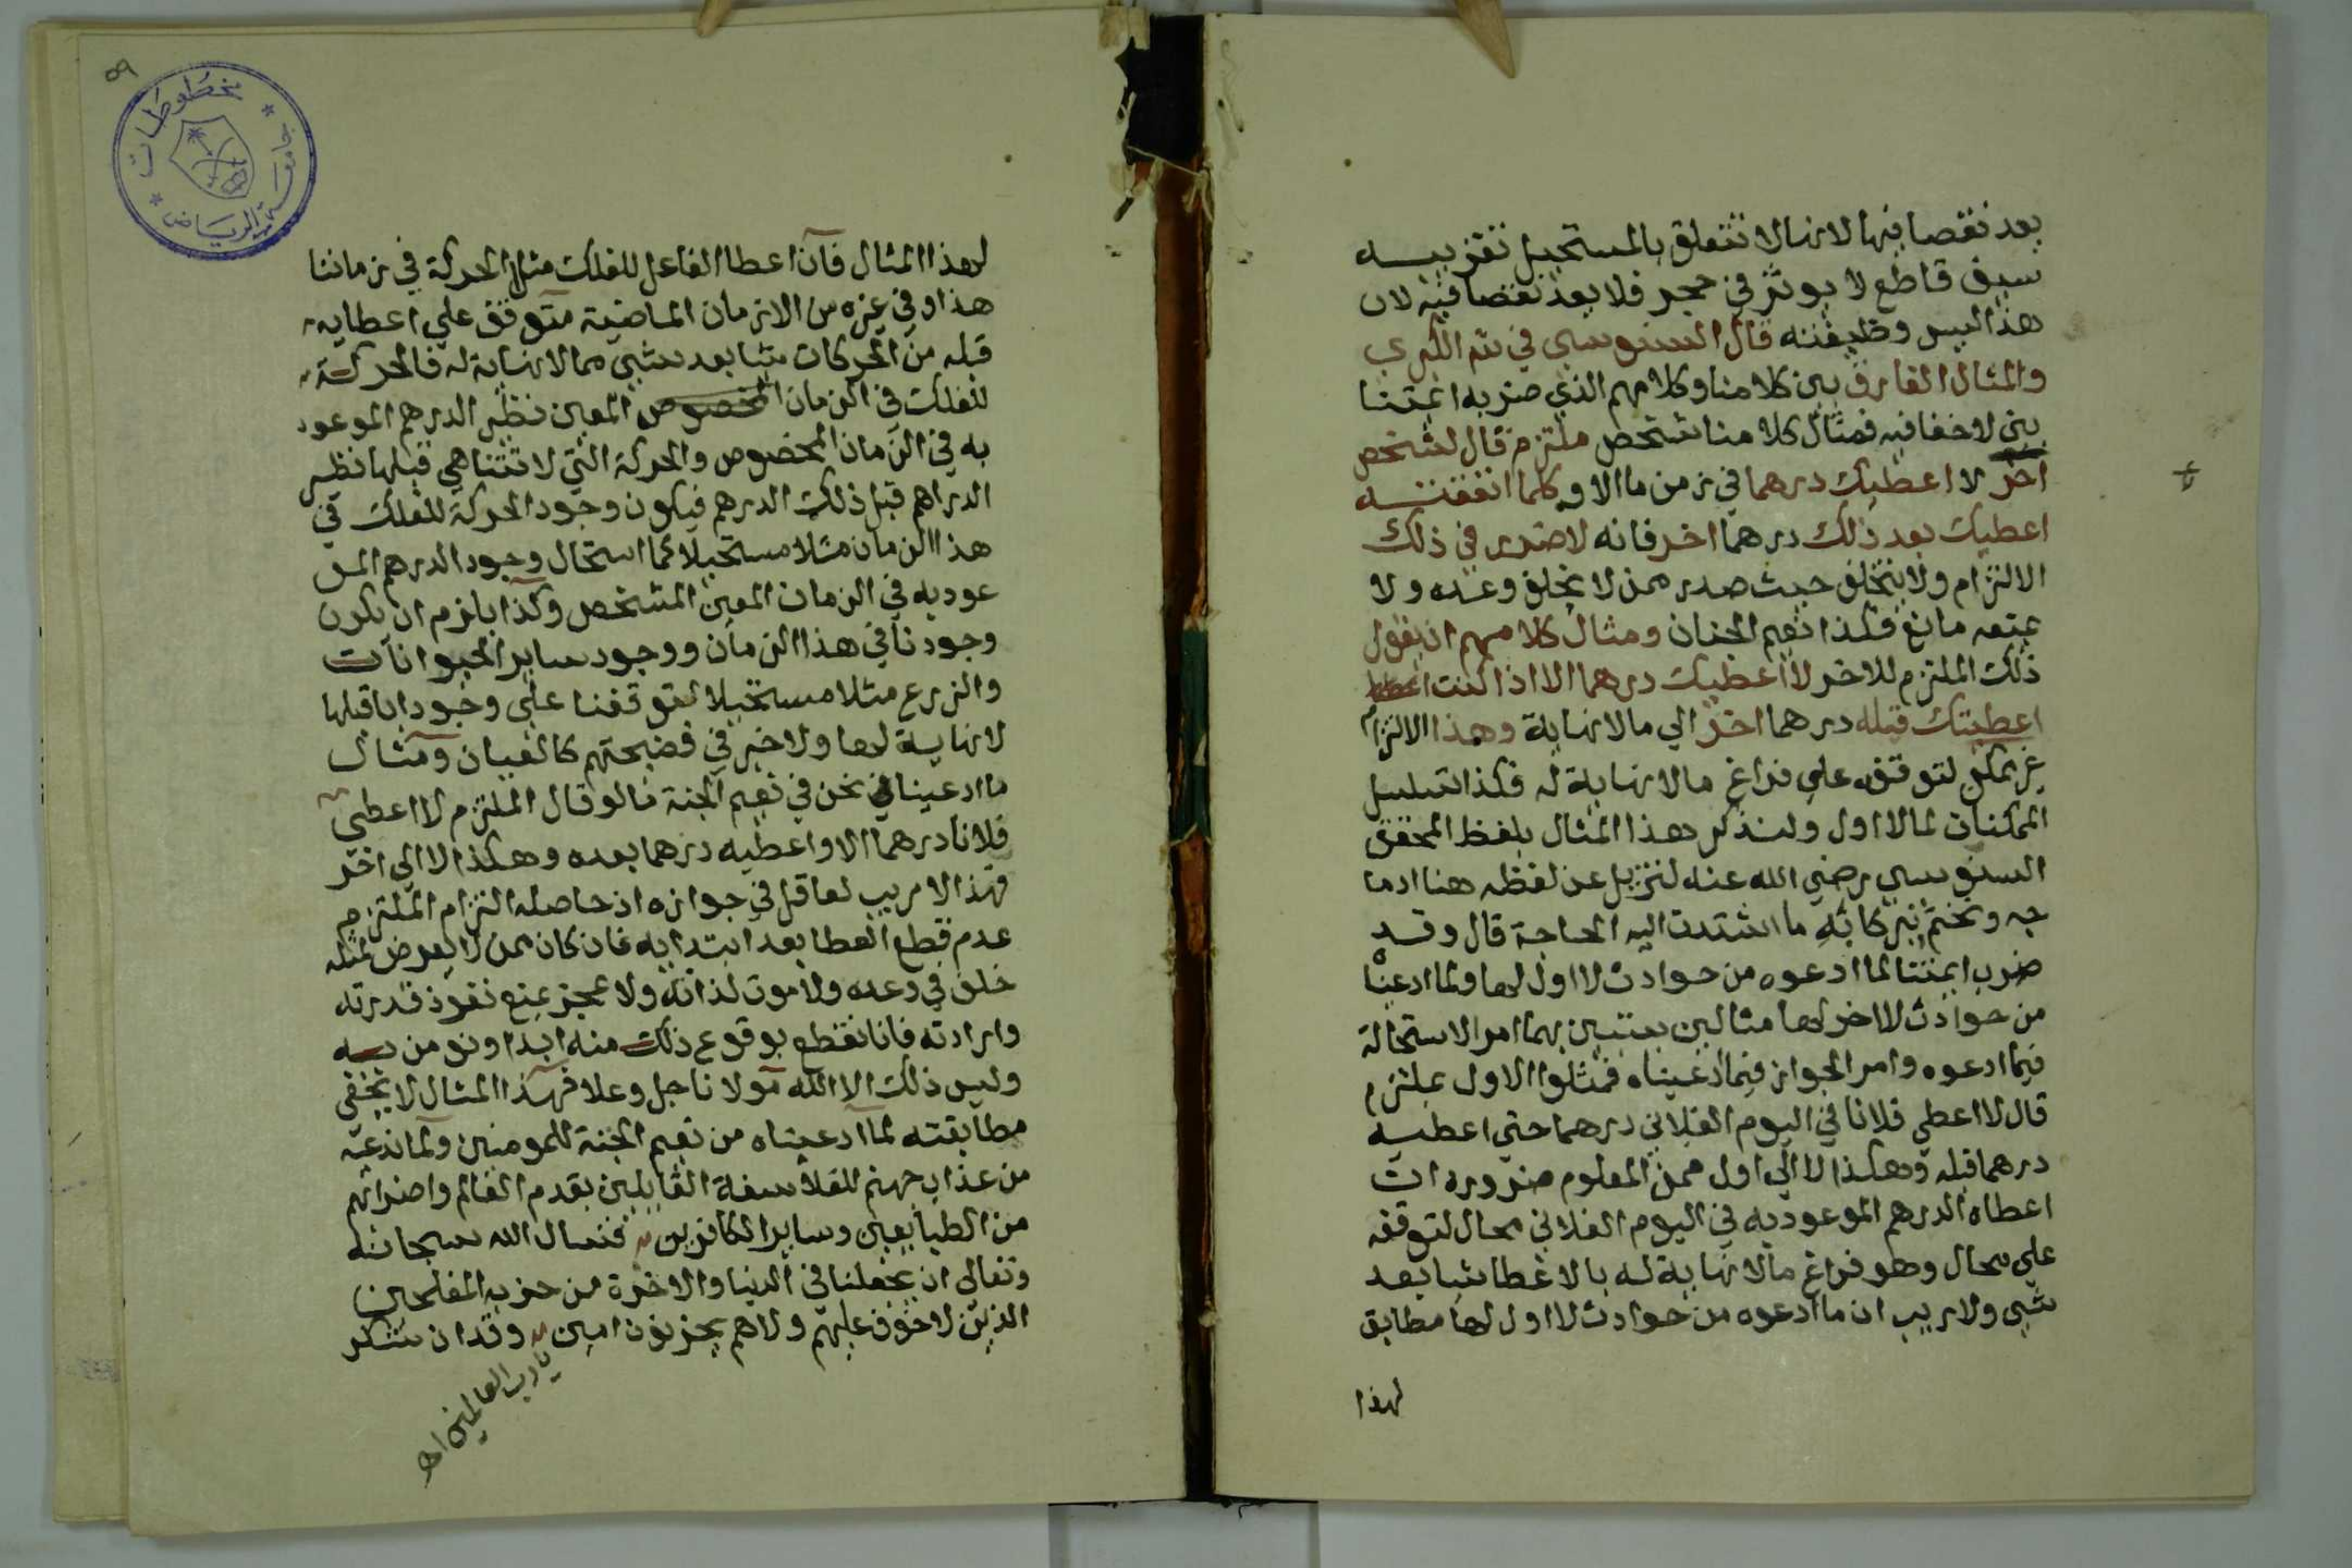 بعد نقصا فيها لانها لا تتعلق بالمستحيل تقريبه
سيف قاطع لا يوثر في حجر فلا يعد نقصا فيه لان
هذا ليس وظيفته قال السنوسي في شرح الكبري
والمثال الفارق بين كلامنا وكلامهم الذي ضربه ايمتنا
بين لاخفا فيه فمثال كلامنا شخص ملتزم قال لشخص
اخر لا اعطيك درهما في زمن ما الا وكلما انفقته
اعطيك بعد ذلك درهما اخر فانه لا ضرر في ذلك
الالتزام ولا يتخلف حيث صدر ممن لا يخلف وعده ولا
يمنعه مانع فكذا نعيم الجنان ومثال كلامهم ان يقول
ذلك الملتزم للاخر لا اعطيك درهما الا اذا كنت
اعطيتك قبله درهما اخر الي مالا نهاية وهذا الالتزام
غير ممكن لتوقفه علي فراغ مالا نهاية له فكذا تسلسل
الممكنات لما لا اول ولنذكر هذا المثال بلفظ المحقق
السنوسي رضي الله عنه لنزيل عن لفظه هنا ادما
جه ونختم ببركاته ما اشتدت اليه الحاجة قال وقد
ضرب ايمتنا لما ادعوه من حوادث لا اول لها ولما ادعينا
من حوادث لا اخر لها مثالين يتبين بهما امر الاستحالة
فيما ادعوه وامر الجواز فيما ادعيناه فمثلوا الاول بملتزم
قال لا اعطي فلانا في اليوم الفلاني درهما حتي اعطيه
درهما قبله وهكذا لا الي اول فمن المعلوم ضروره ان
اعطاه الدرهم الموعود به في اليوم الفلاني محال لتوقفه
علي محال وهو فراغ مالا نهاية له بالاعطا شيا بعد
شيي ولا ريب ان ما ادعوه من حوادث لا اول لها مطابق
لهذا
٥٩
مخطوطات
جامعة الرياض
لهذا المثال فان اعطا الفاعل للفلك مثلا الحركة في زماننا
هذا او في غيره من الازمان الماضية متوقف علي اعطايه
قبله من الحركات شيا بعد شيي مما لا نهاية له فالحركة
للفلك في الزمان المخصوص المعين نظير الدرهم الموعود
به في الزمان المخصوص والحركة التي لا تتناهي قبلها نظير
الدراهم قبل ذلك الدرهم فيكون وجود الحركة للفلك في
هذا الزمان مثلا مستحيلا كما استحال وجود الدرهم المو
عود به في الزمان المعين المشخص وكذا يلزم ان يكون
وجودنا في هذا الزمان ووجود ساير الحيوانات
والزرع مثلا مستحيلا لتوقفنا علي وجود ابا قبلها
لا نهاية لها ولا خير في فضيحتهم كالعيان ومثال
ما ادعيناه نحن في نعيم الجنة مالو قال الملتزم لا اعطي
فلانا درهما الا واعطيه درهما بعده وهكذا لا الي اخر
فهذا لا مريب لعاقل في جوازه اذ حاصله التزام الملتزم
عدم قطع العطا بعد ابتدايه فان كان ممن لا يعرض لمثله
خلف في وعده ولا موت لذاته ولا عجز يمنع نفوذ قدرته
وارادته فانا نقطع بوقوع ذلك منه ابدا ونومن به
وليس ذلك الا الله مولانا جل وعلا فهذا المثال لا يخفي
مطابقته لما ادعيناه من نعيم الجنة للمومنين ولما ندعيه
من عذاب جهنم للفلاسفة القايلين بقدم العالم واضرابهم
من الطبايعين وساير الكافرين فنسال الله سبحانه
وتعالي ان يجعلنا في الدنيا والاخرة من حزبه المفلحين
الذين لا خوف عليهم ولا هم يحزنون امين وقد ان نشكر
يارب العالمين اه